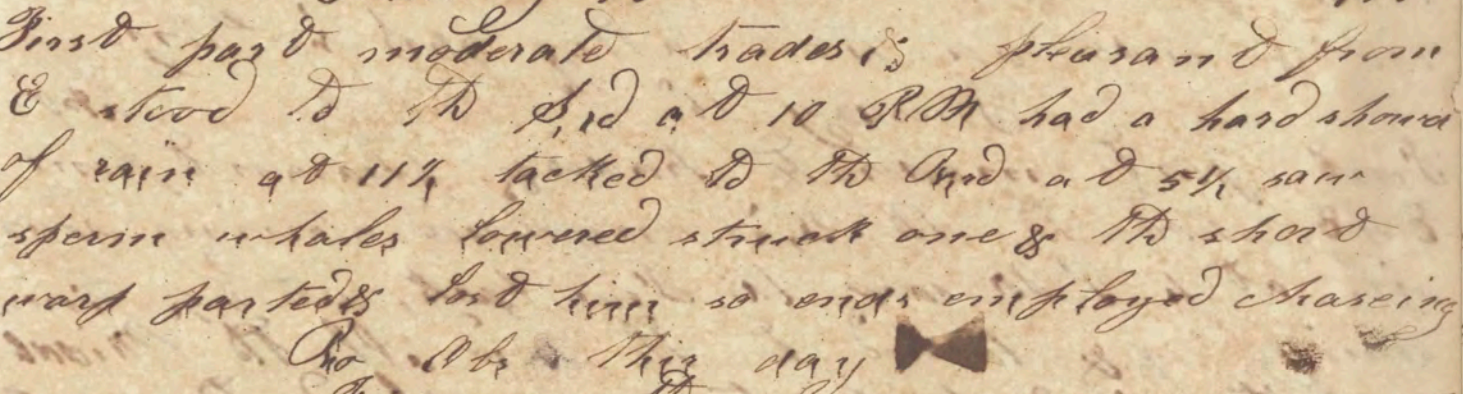 First part moderate trades & pleasant from
E stood to the S,rd at 10 P.M had a hard shower
of rain at 11½ tacked to the Nrd at 5½ saw
sperm whales lowered struck one & the short
warp parted & lost him so ends employed chaseing
No Obs this day